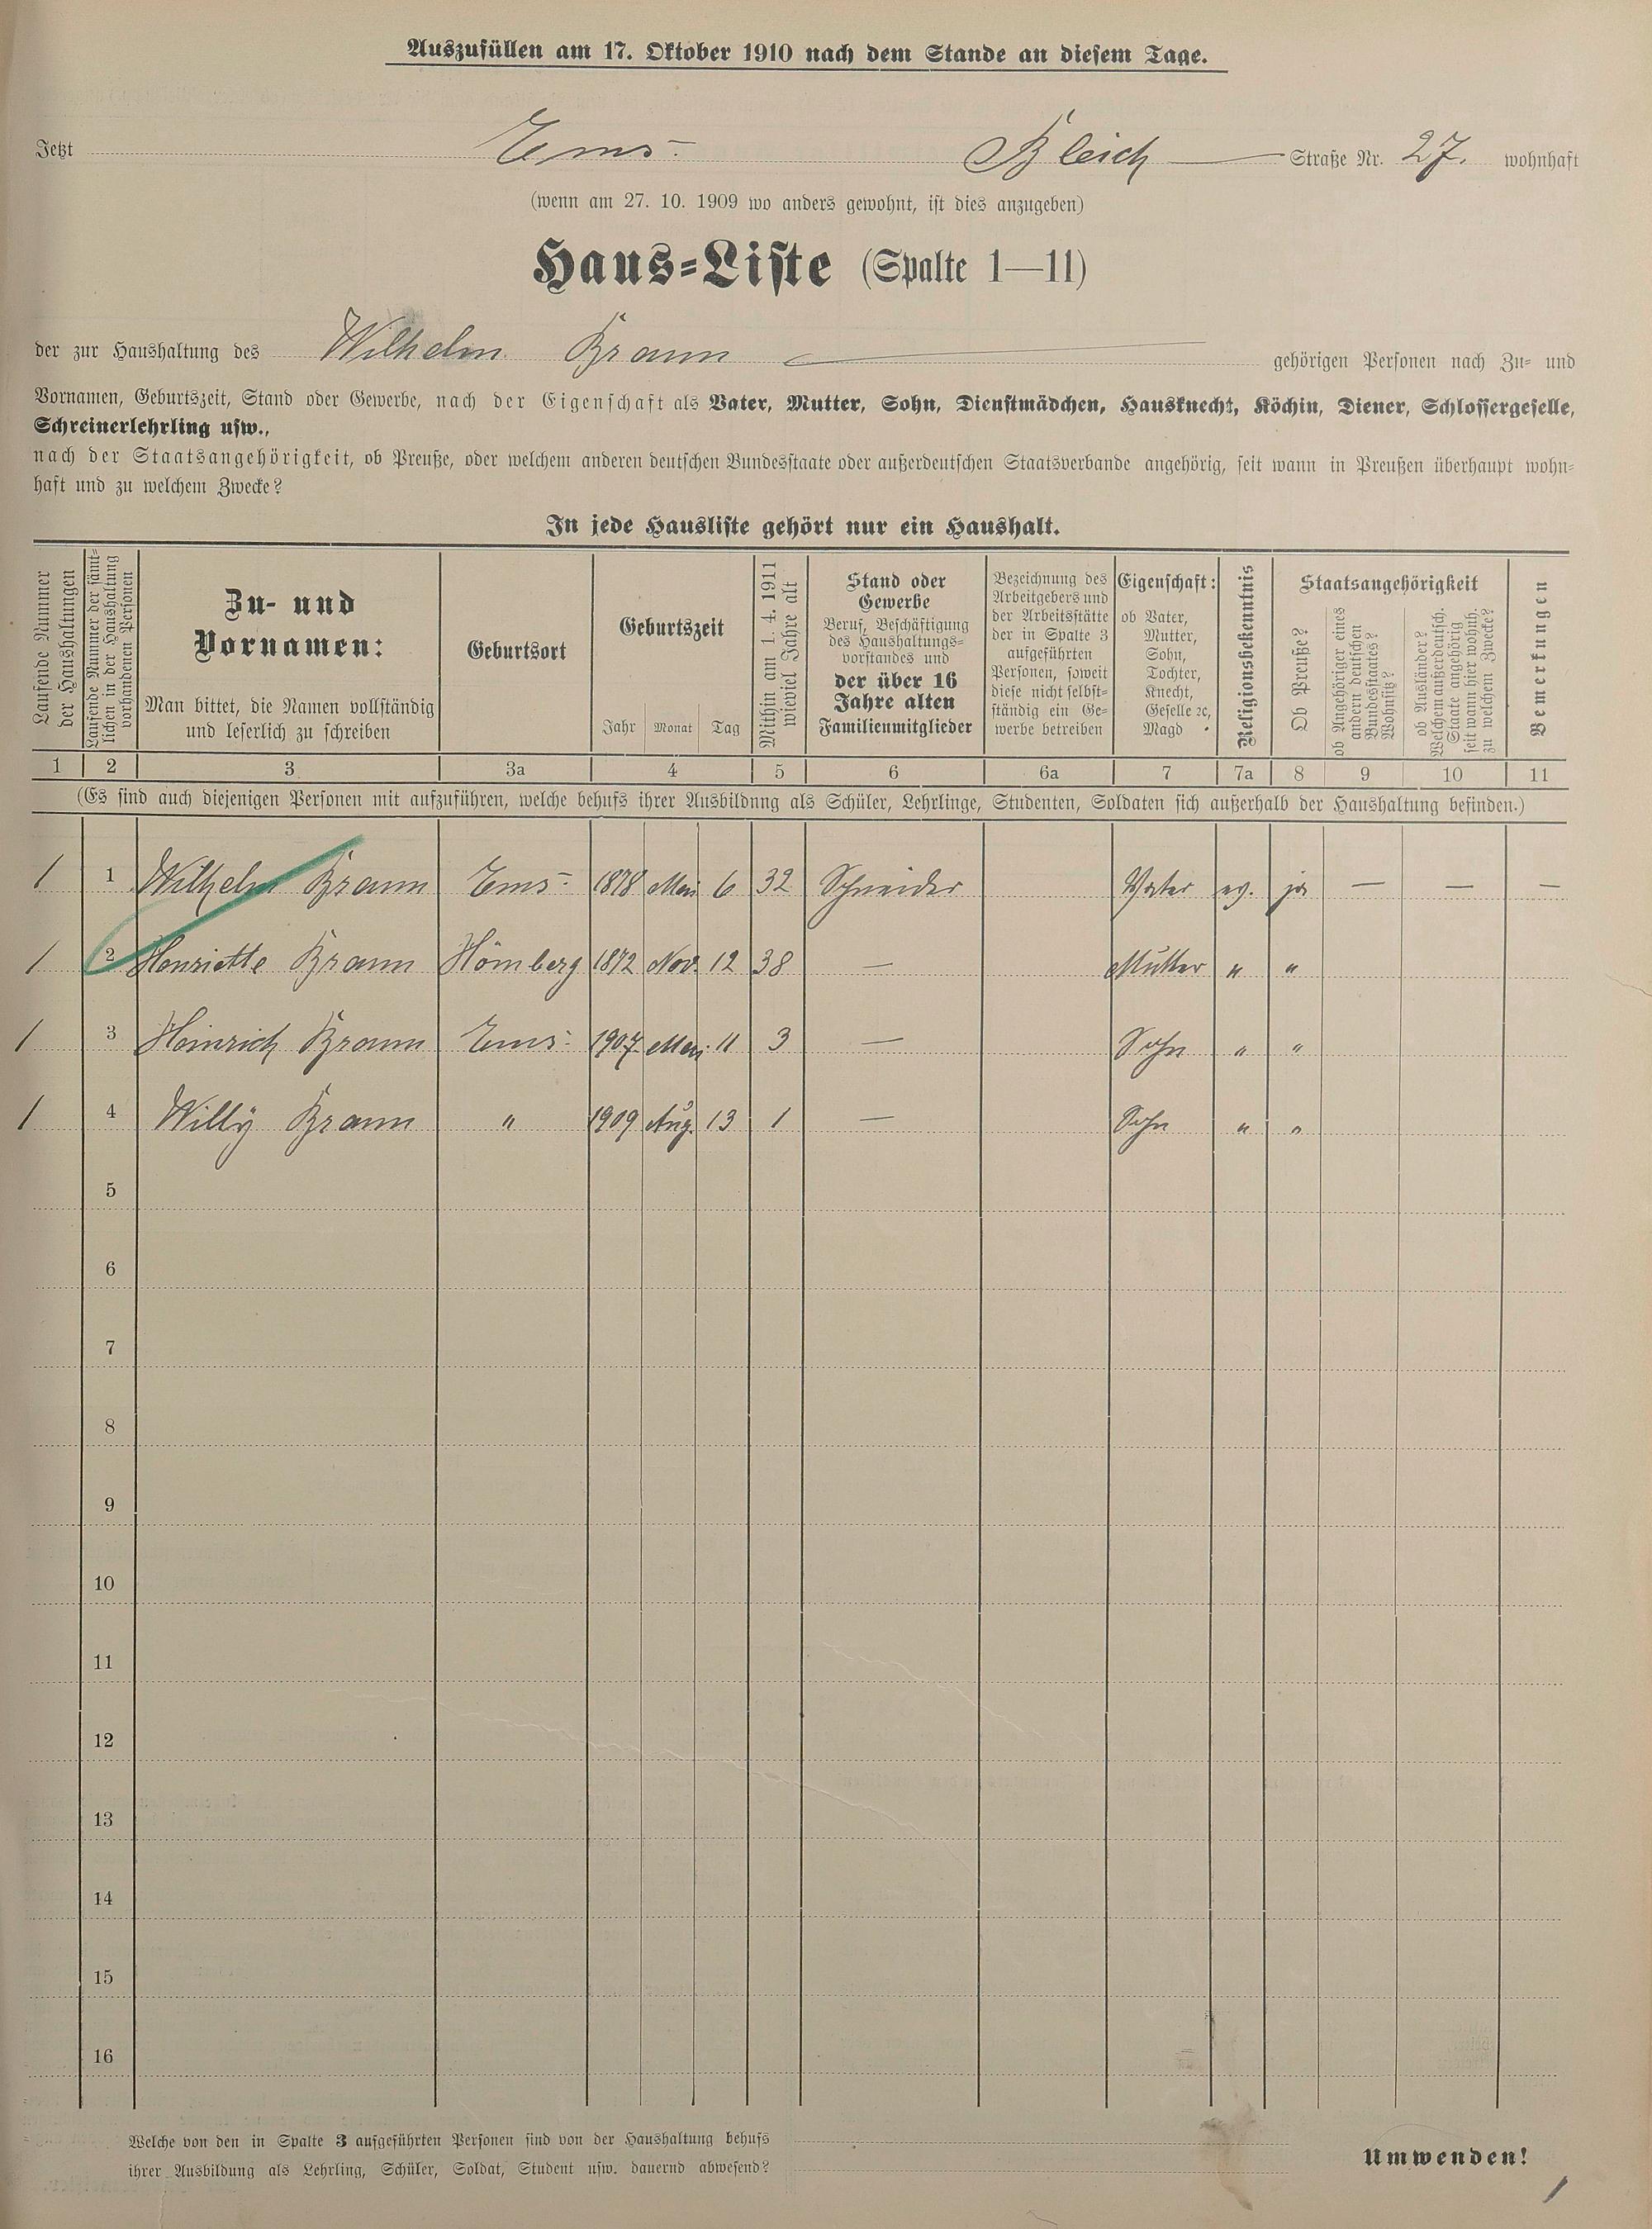 Auszufüllen am 17. Oktober 1910 nach dem Stande an diesem Tage.
Jetzt Ems Bleich Straße Nr. 27. wohnhaft
(wenn am 27. 10. 1909 wo anders gewohnt, ist dies anzugeben)
Haus-Liste (Spalte 1—11)
der zur Haushaltung des Wilhelm Braun gehörigen Personen nach Zu- und
Vornamen, Geburtszeit, Stand oder Gewerbe, nach der Eigenschaft als Vater, Mutter, Sohn, Dienstmädchen, Hausknecht, Köchin, Diener, Schlossergeselle,
Schreinerlehrling usw.,
nach der Staatsangehörigkeit, ob Preuße, oder welchem anderen deutschen Bundesstaate oder außerdeutschen Staatsverbande angehörig, seit wann in Preußen überhaupt wohn-
haft und zu welchem Zwecke?
In jede Hausliste gehört nur ein Haushalt.
Laufende Nummer
der Haushaltungen
Laufende Nummer der sämt-
lichen in der Haushaltung
vorhandenen Personen
Zu- und
Vornamen:
Man bittet, die Namen vollständig
und leserlich zu schreiben
Geburtsort
Geburtszeit
Jahr Monat Tag
Mithin am 1. 4. 1911
wieviel Jahre alt
Stand oder
Gewerbe
Beruf, Beschäftigung
des Haushaltungs-
vorstandes und
der über 16
Jahre alten
Familienmitglieder
Bezeichnung des
Arbeitgebers und
der Arbeitsstätte
der in Spalte 3
aufgeführten
Personen, soweit
diese nicht selbst-
ständig ein Ge-
werbe betreiben
Eigenschaft:
ob Vater,
Mutter,
Sohn,
Tochter,
Knecht,
Geselle ꝛc,
Magd
Religionsbekenntnis
Staatsangehörigkeit
Ob Preuße?
ob Angehöriger eines
andern deutschen
Bundesstaates?
Wohnsitz?
ob Ausländer?
Welchem außerdeutsch.
Staate angehörig
seit wann hier wohnh.
zu welchem Zwecke?
Bemerkungen
1 2 3 3a 4 5 6 6a 7 7a 8 9 10 11
(Es sind auch diejenigen Personen mit aufzuführen, welche behufs ihrer Ausbildung als Schüler, Lehrlinge, Studenten, Soldaten sich außerhalb der Haushaltung befinden.)
1 1 Wilhelm Braun Ems 1878 Mai 6 32 Schneider Vater ev. ja — — —
1 2 Henriette Braun Hömberg 1872 Nov. 12 38 — Mutter " "
1 3 Heinrich Braun Ems 1907 Mai 11 3 — Sohn " "
1 4 Willy Braun " 1909 Aug. 13 1 — Sohn " "
5
6
7
8
9
10
11
12
13
14
15
16
Welche von den in Spalte 3 aufgeführten Personen sind von der Haushaltung behufs
ihrer Ausbildung als Lehrling, Schüler, Soldat, Student usw. dauernd abwesend?
Umwenden!
1